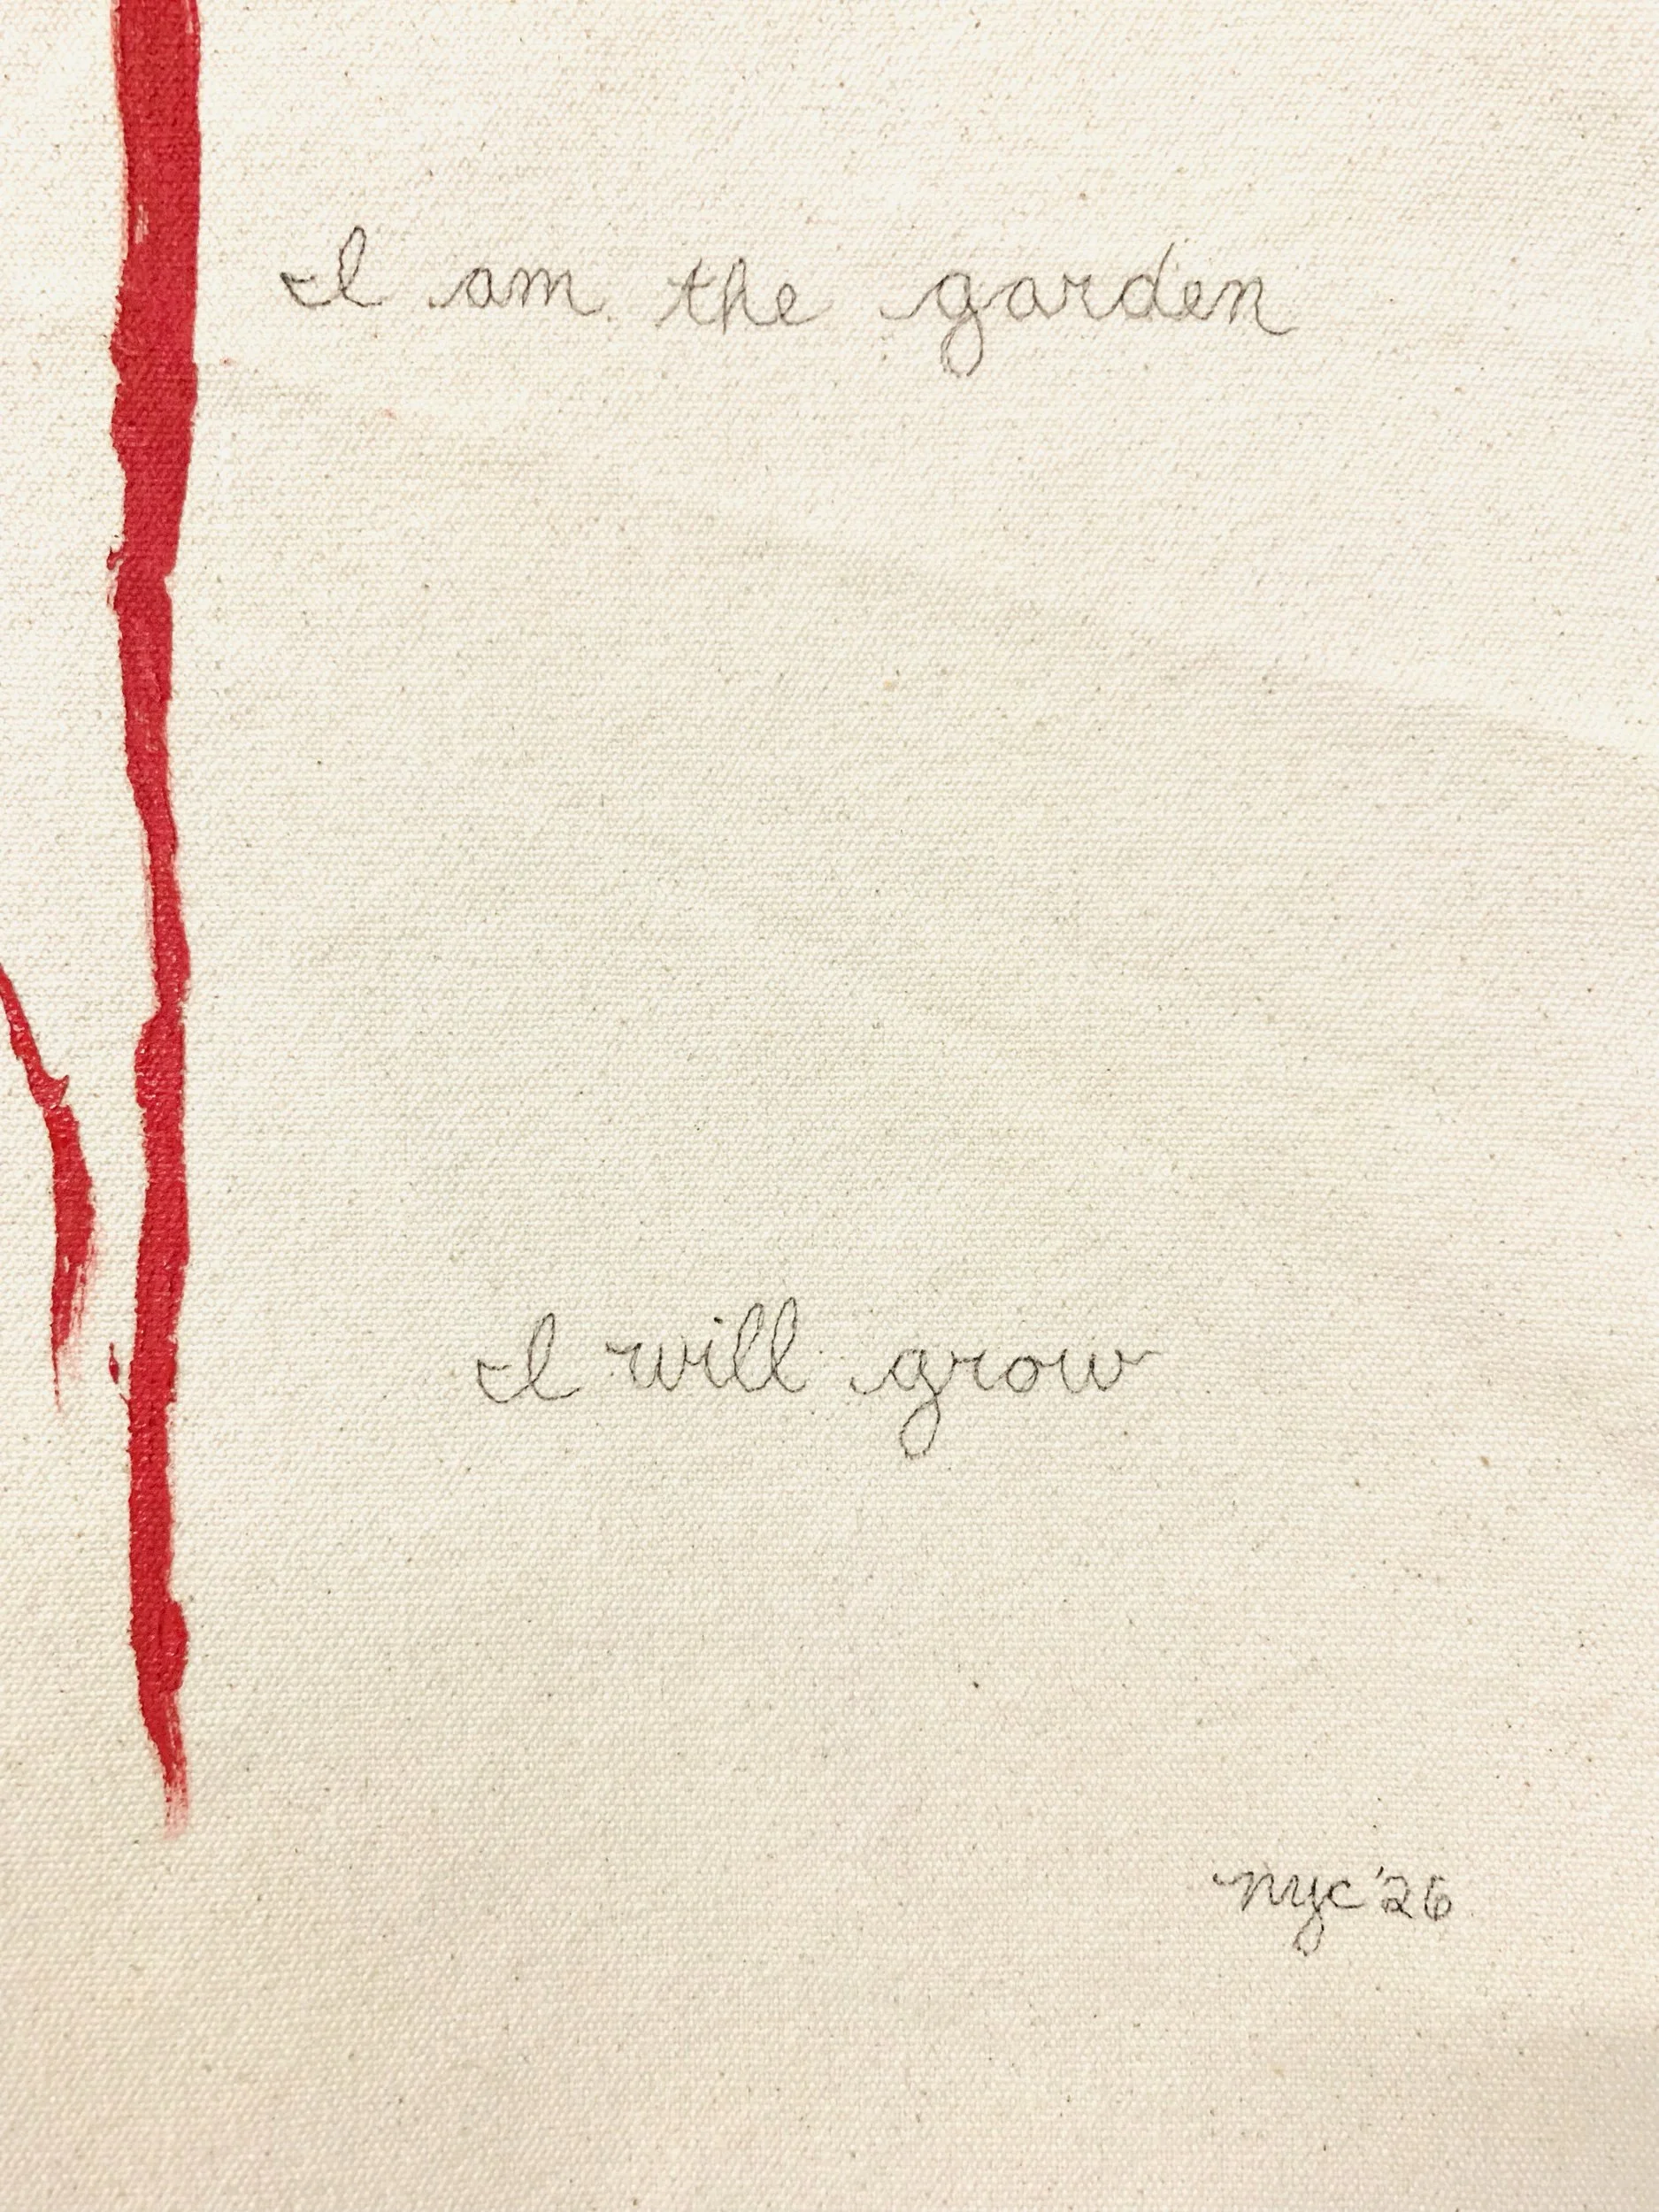 I am the garden
I will grow
nyc '26